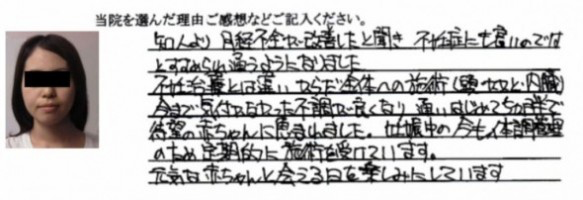 当院を選んだ理由ご感想などご記入ください。
知人より月経不全が改善したと聞き 不妊症にも良いのでは
とすすめられ通うようになりました。
不妊治療とは違い からだ全体への施術(頭 内臓)
今まで気付かなかった不調が良くなり 通いはじめて
待望の赤ちゃんに恵まれました。妊娠中の今も体調管理
のため定期的に施術を受けています。
元気な赤ちゃんと会える日を楽しみにしています